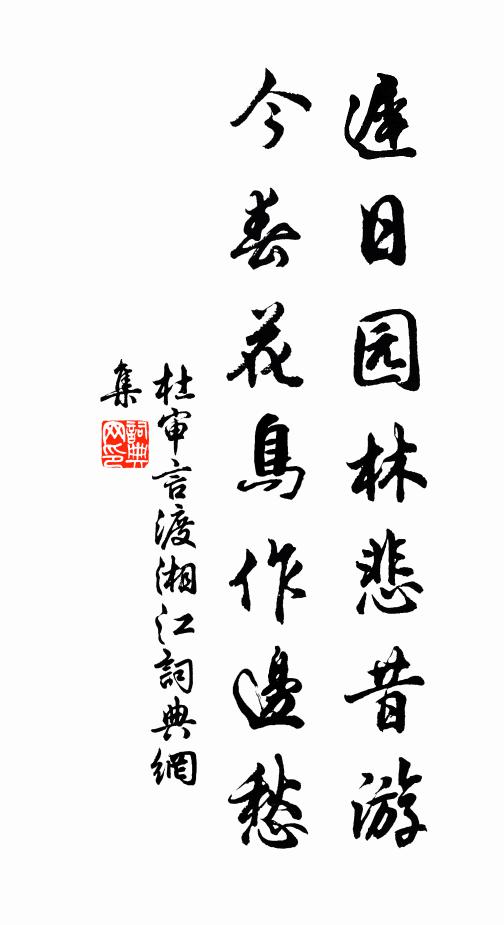 遲日园林悲昔游
今春花鳥作邊愁
杜审言渡湘江詞典網
集
詞典网印